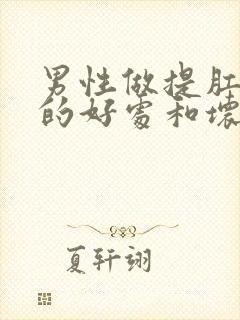 男性做提肛
的好处和壞
夏轩翊